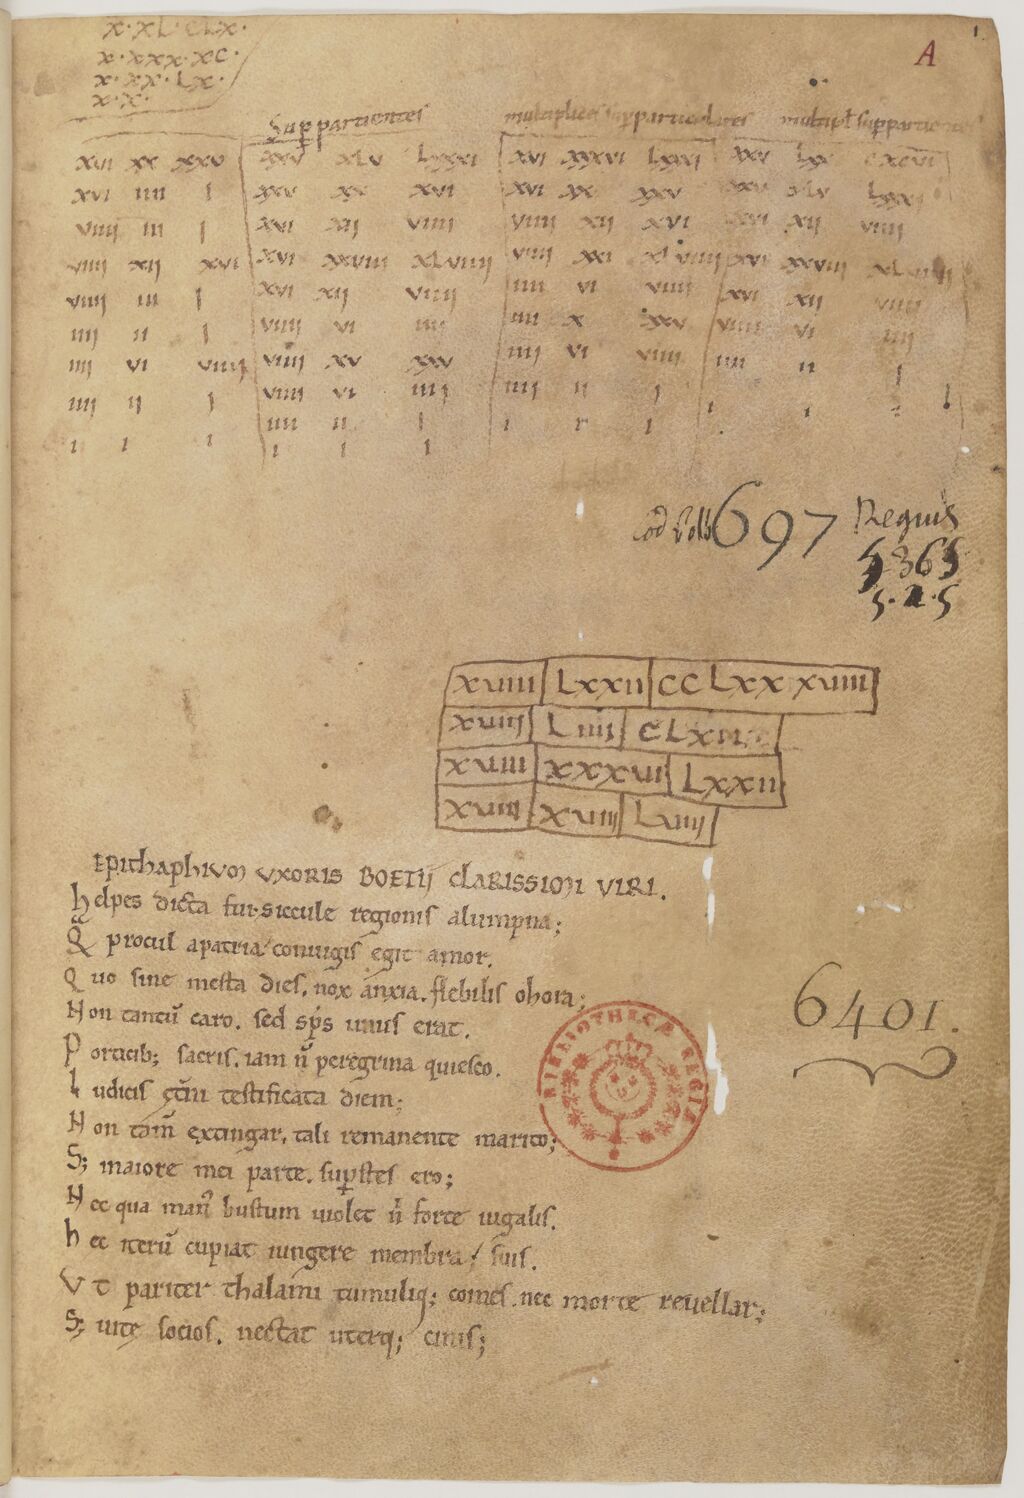 A
1
x · xL · cLx ·
x · xxx · xc ·
x · xx · Lx ·
x · x ·
Sup partientes
multiplices supparticulares multipl suppartientes
xvi xx xxv xxv xLv Lxxxi xvi xxxvi Lxxxi xxv Lxx cxcvi
xvi iiij j xxv xx xvi xvi xx xxv xxv xLv Lxxxi
viiij iij j xvi xij viiij viiij xij xvi xvi xij viiij
viiij xij xvi xvi xxviij xLviiij viiij xxi xLviiij xvi xxviij xLviiij
viiij iij j xvi xij viiij iiij vi viiij xvi xij viiij
iiij ij j viiij vi iiij iiij x xxv viiij vi iiij
iiij vi viiij viiij xv xxv iiij vi viiij iiij ij j
iiij ij j viiij vi iiij iiij ij j ı ı
ı ı ı iiij ij j ı ı
ı ı ı
697 Regius
5365
5·2·5
xviiii Lxxii cc Lxx xviiii
xviij L iiij cLxii
xviiii xxxvi Lxxii
xviij xviij Liiij
Epithaphium uxoris BOETII clarissimi viri.
helpes dicta fui siccule regionis alumpna;
Q̄ procul apatria coniugis egit amor.
Quo sine mesta dies, nox anxia. flebilis ohora;
Non tantū caro. sed sp̄s unus erat.
Porticib; sacris, iam n̄ peregrina quiesco.
Iudicis et̄ni testificata diem;
Non tam̄ extingar, tali remanente marito;
S; maiore mei parte. supstes ero;
Nec qua man᷒ bustum uiolet n̄ forte iugalis.
hec iterū cupiat iungere membra suis.
Ut pariter thalami tumuliq; comes nec morte reuellar;
S; uitę socios. nectat uterq; cinis;
6401.
BIBLIOTHECÆ REGIÆ